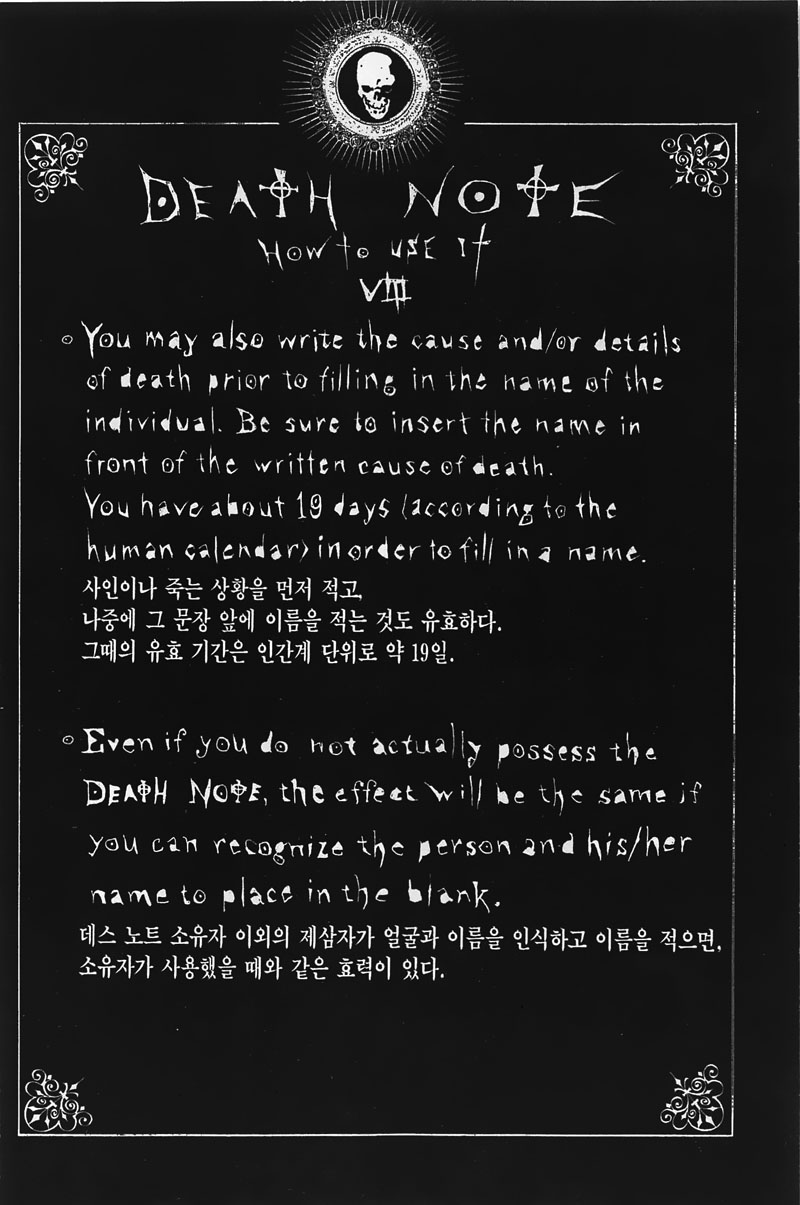 DEATH NOTE
How to use it
VIII
You may also write the cause and/or details
of death prior to filling in the name of the
individual. Be sure to insert the name in
front of the written cause of death.
You have about 19 days (according to the
human calendar) in order to fill in a name.
사인이나 죽는 상황을 먼저 적고,
나중에 그 문장 앞에 이름을 적는 것도 유효하다.
그때의 유효 기간은 인간계 단위로 약 19일.
Even if you do not actually possess the
DEATH NOTE, the effect will be the same if
you can recognize the person and his/her
name to place in the blank.
데스 노트 소유자 이외의 제삼자가 얼굴과 이름을 인식하고 이름을 적으면,
소유자가 사용했을 때와 같은 효력이 있다.